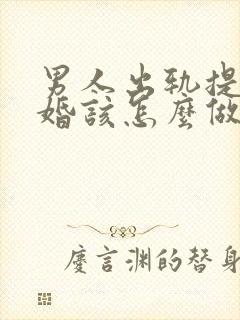 男人出轨提
婚該怎麼做
慶言渊的替身